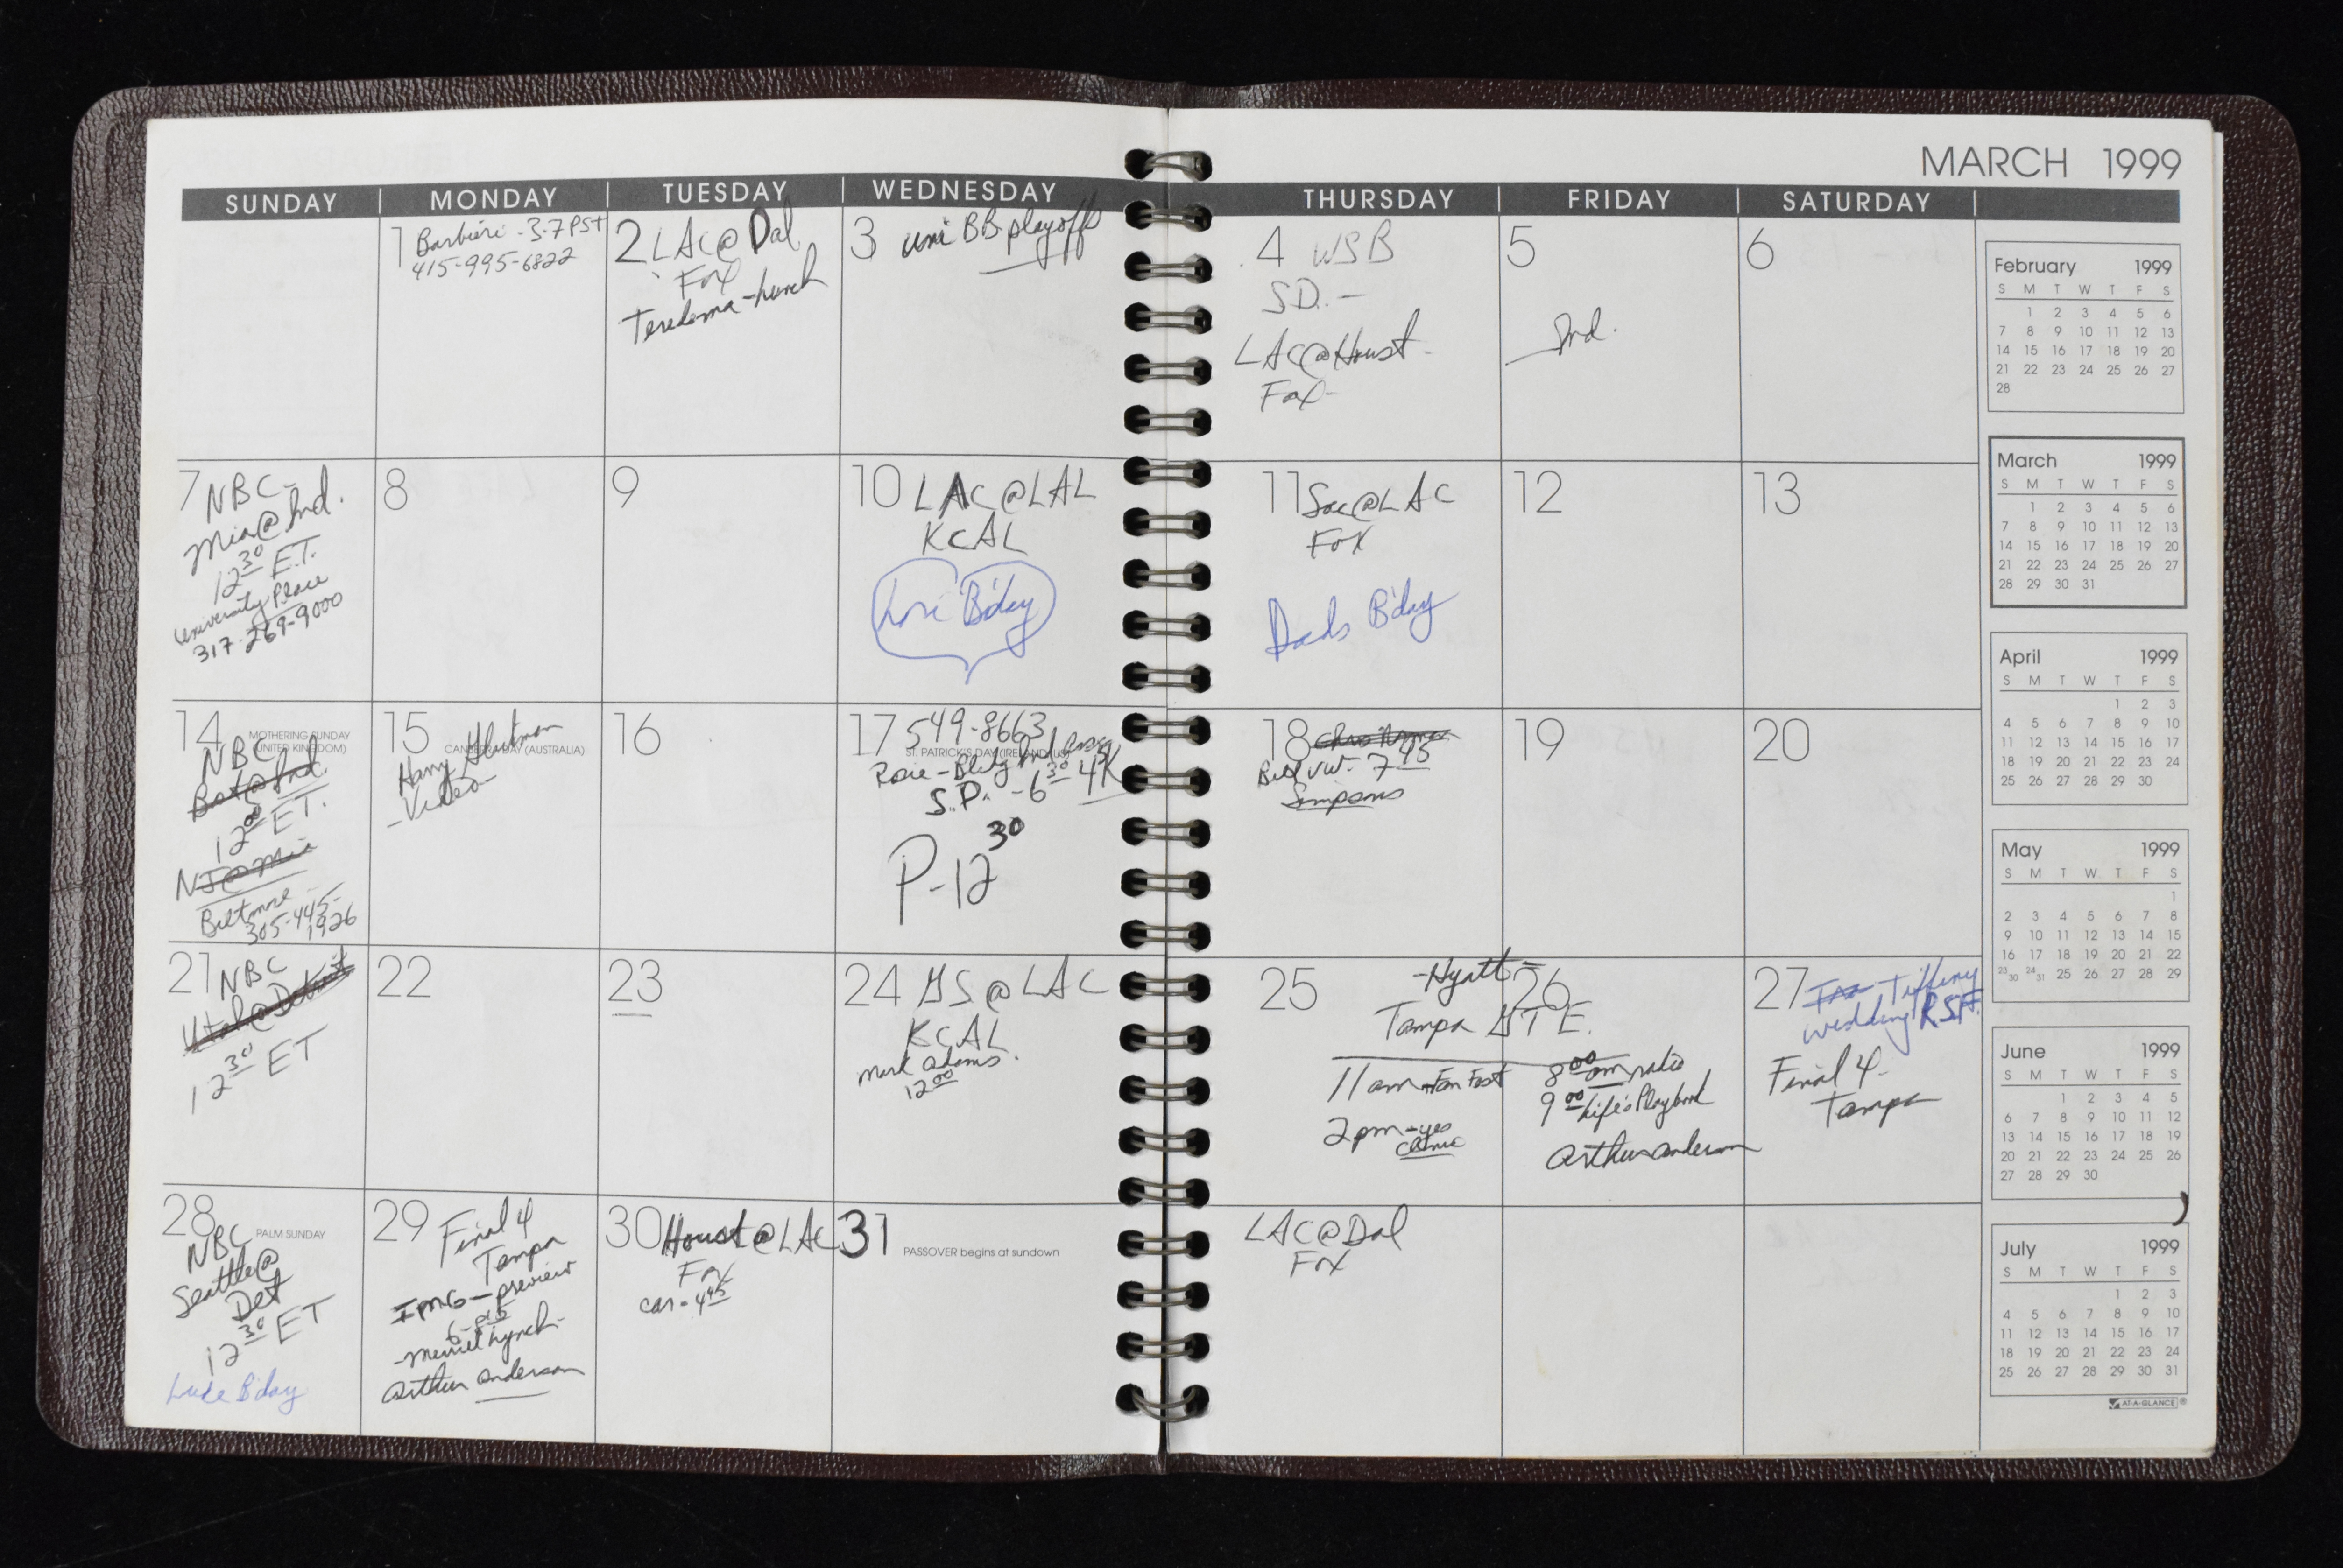 MARCH 1999
SUNDAY MONDAY TUESDAY WEDNESDAY THURSDAY FRIDAY SATURDAY
1 Barbieri - 3-7 PST
415-995-6822
2 LAC@Dal
Fox
Teredema-lunch
3 uni BB playoffs
4 WSB
SD. -
LAC@Houst -
Fox -
5
Ind.
6
7 NBC -
Mia@Ind.
12 30 E.T.
University Place
317-269-9000
8
9
10 LAC@LAL
KCAL
Lori B'day
11 Sac@LAC
Fox
Dads B'day
12
13
14 MOTHERING SUNDAY
(UNITED KINGDOM)
NBC
Bos@Ind.
12 00 E.T.
NJ@Mia
Biltmore
305-445-
1926
15 CANBERRA DAY (AUSTRALIA)
Harry Glickman
- Video -
16
17 549-8663
ST. PATRICK'S DAY
Rosie - Bldg
S.D. - 6 30 45K
P-12 30
18
Bill VW - 7 45
Simpsons
19
20
21 NBC
Utah@Detroit
12 30 ET
22
23
24 GS@LAC
KCAL
Mark Adams
12 00
25 26
- Hyatt -
Tampa GTE.
11am - Fan Fest
2pm - yes
clinic
8 00 am radio
9 00 Life's Playbook
Arthur Anderson
27 Tiffany
wedding RSF.
Final 4 -
Tampa
28 PALM SUNDAY
NBC
Seattle@
Det
12 30 ET
Luke B'day
29 Final 4
Tampa
IMG - preview
- Merriel Lynch -
Arthur Anderson
30 Houst@LAC
Fox
car - 4 45
31 PASSOVER begins at sundown
LAC@Dal
Fox
February 1999
S M T W T F S
1 2 3 4 5 6
7 8 9 10 11 12 13
14 15 16 17 18 19 20
21 22 23 24 25 26 27
28
March 1999
S M T W T F S
1 2 3 4 5 6
7 8 9 10 11 12 13
14 15 16 17 18 19 20
21 22 23 24 25 26 27
28 29 30 31
April 1999
S M T W T F S
1 2 3
4 5 6 7 8 9 10
11 12 13 14 15 16 17
18 19 20 21 22 23 24
25 26 27 28 29 30
May 1999
S M T W T F S
1
2 3 4 5 6 7 8
9 10 11 12 13 14 15
16 17 18 19 20 21 22
23/30 24/31 25 26 27 28 29
June 1999
S M T W T F S
1 2 3 4 5
6 7 8 9 10 11 12
13 14 15 16 17 18 19
20 21 22 23 24 25 26
27 28 29 30
July 1999
S M T W T F S
1 2 3
4 5 6 7 8 9 10
11 12 13 14 15 16 17
18 19 20 21 22 23 24
25 26 27 28 29 30 31
AT-A-GLANCE®